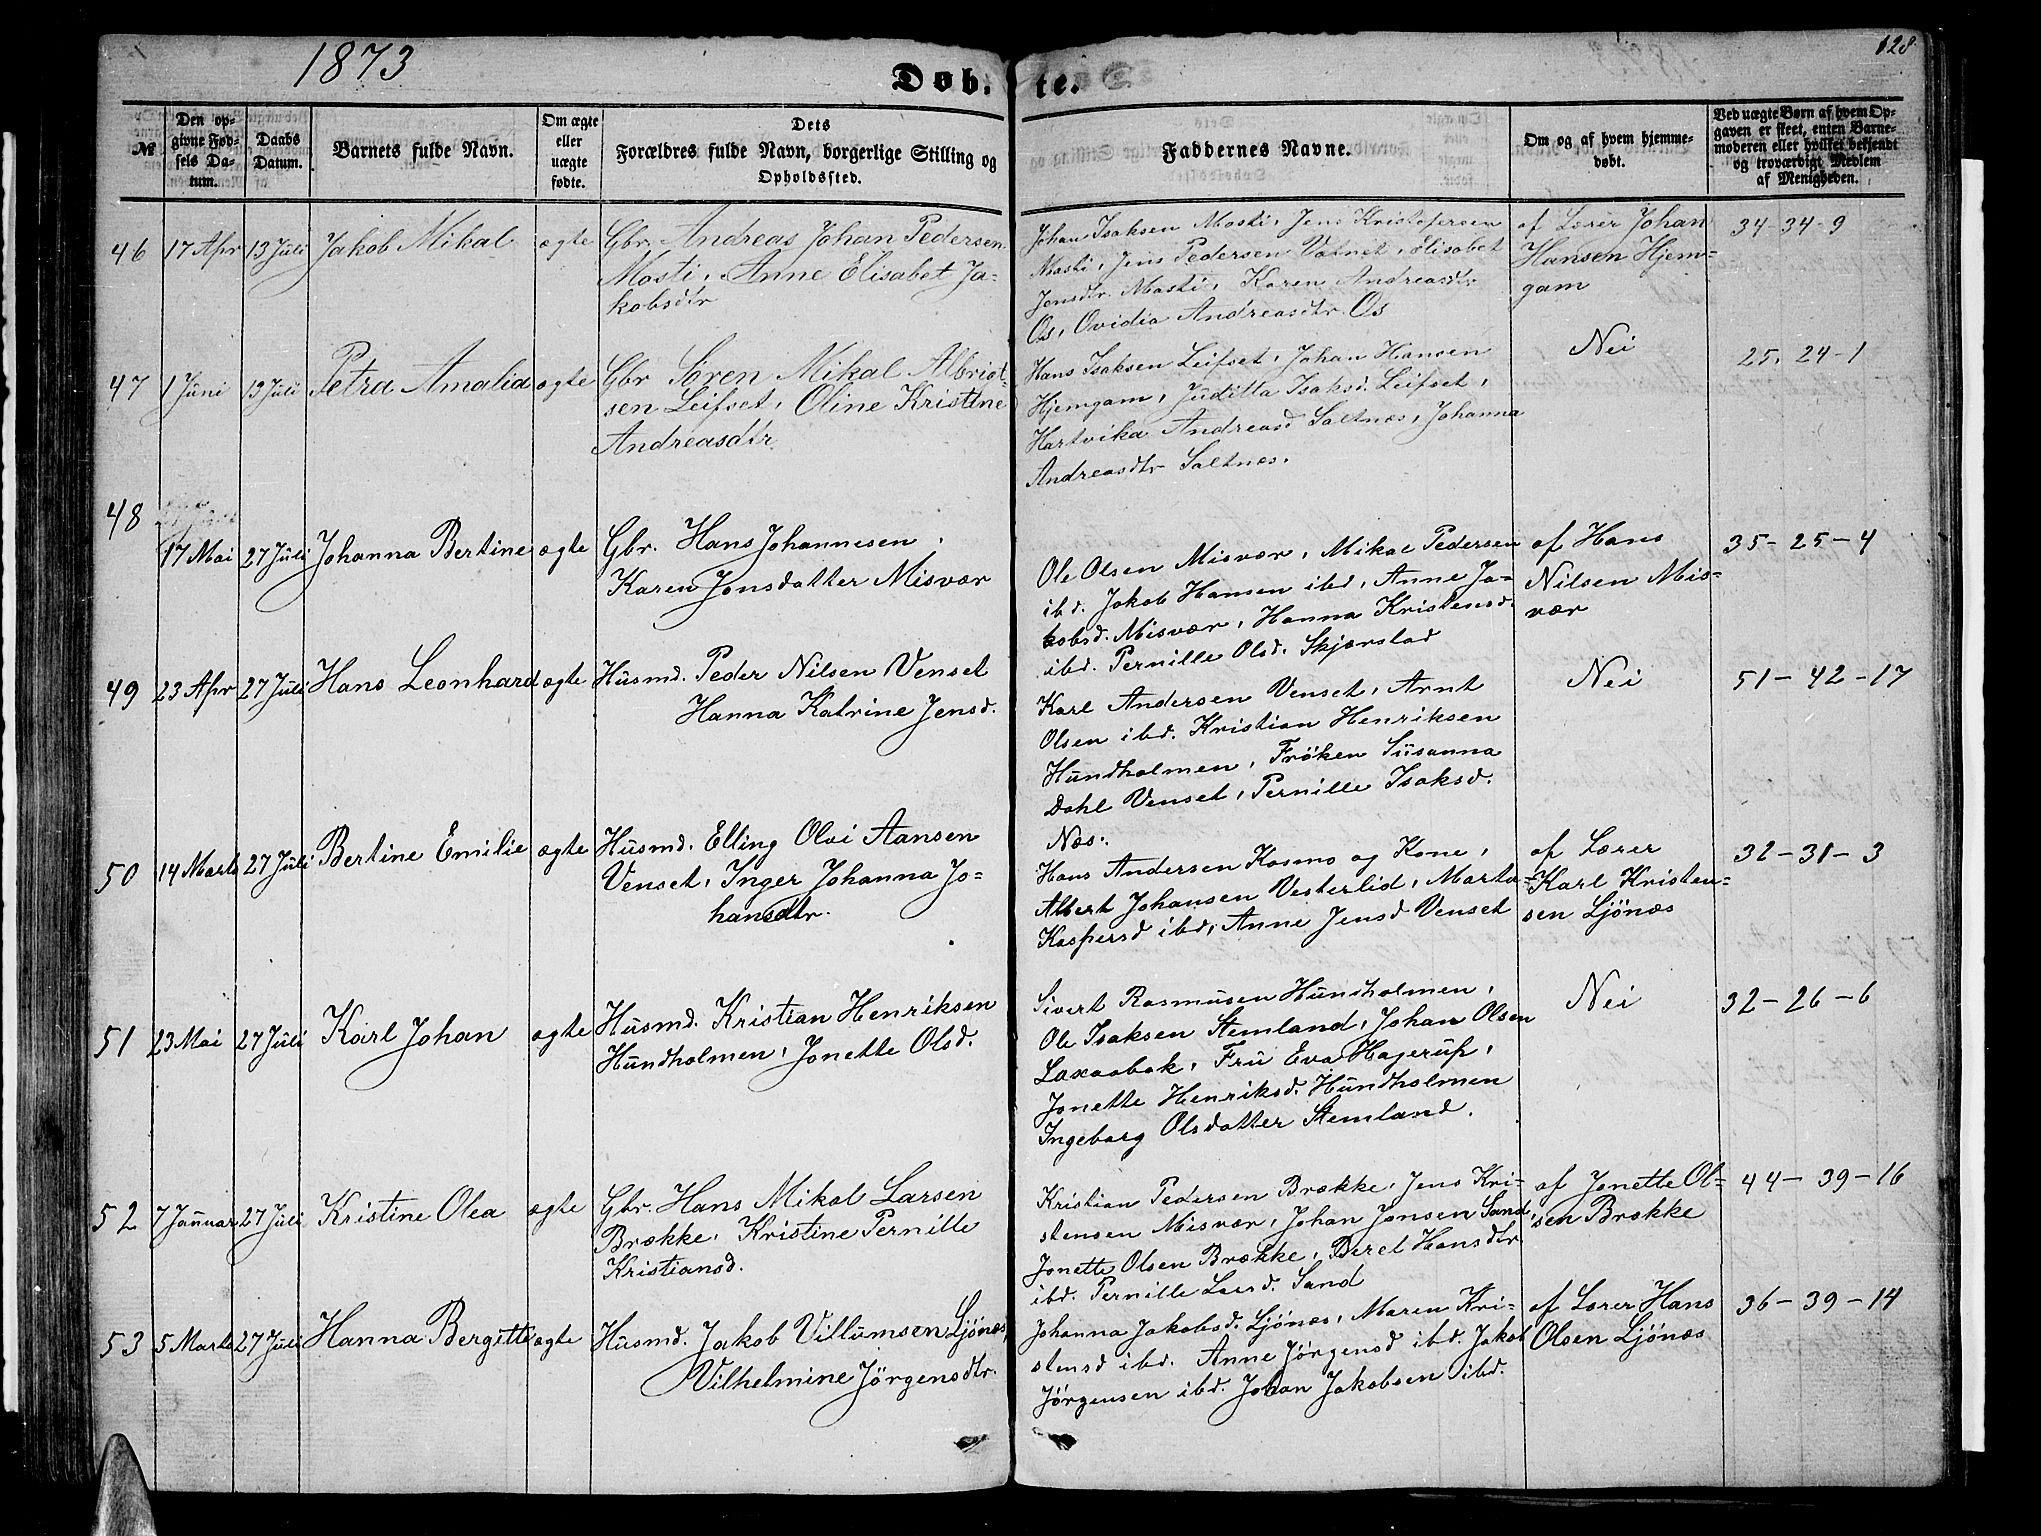 1873
128
Døb. te.
№
Den op-
givne Fød-
sels Da-
tum.
Daabs
Datum.
Barnets fulde Navn.
Om ægte
eller
uægte
fødte.
Dets
Forældres fulde Navn, borgerlige Stilling og
Opholdssted.
Faddernes Navne.
Om og af hvem hjemme-
døbt.
Ved uægte Børn af hvem Op-
gaven er skeet, enten Barne-
moderen eller hvilket bekjendt
og troværdigt Medlem
af Menigheden.
46 17 Apr 13 Juli Jakob Mikal ægte
Gbr. Andreas Johan Pedersen
Mosti, Anne Elisabet Ja-
kobsdtr
Johan Isaksen Mosti, Jens Kristofersen
Mosti, Jens Pedersen Vatnet, Elisabet
Jensdtr. Mosti, Karen Andreasdtr
Os, Ovidia Andreasdtr. Os
af Lærer Johan
Hansen Hjem-
gam
34-34-9
47 1 Juni 13 Juli Petra Amalia ægte
Gbr Sören Mikal Albrigt-
sen Leifset, Oline Kristine
Andreasdtr
Hans Isaksen Leifset, Johan Hansen
Hjemgam, Juditta Isaksd. Leifset,
Hartvika Andreasd Saltnes, Johanna
Andreasdtr Saltnes.
Nei
25. 24-1
48
17 Mai 27 Juli Johanna Bertine ægte
Gbr. Hans Johannesen,
Karen Jonsdatter Misvær
Ole Olsen Misvær, Mikal Pedersen
ibd. Jakob Hansen ibd, Anne Ja-
kobsd. Misvær, Hanna Kristensd.
ibd. Pernille Olsd. Skjærstad
af Hans
Nilsen Mis-
vær
35-25-4
49 23 Apr 27 Juli Hans Leonhard ægte
Husmd. Peder Nilsen Venset
Hanna Katrine Jensd.
Karl Andersen Venset, Arnt
Olsen ibd. Kristian Henriksen
Hundholmen, Fröken Susanna
Dahl Venset, Pernille Isaksd.
Næs.
Nei
51-42-17
50 14 Marts 27 Juli Bertine Emilie ægte
Husmd. Elling Olai Aansen
Venset, Inger Johanna Jo-
hansdtr.
Hans Andersen Kosmo og Kone,
Albert Johansen Vesterlid, Marta
Kaspersd ibd, Anne Jensd Venset
af Lærer
Karl Kristen-
sen Ljönæs
32-31-3
51 23 Mai 27 Juli Karl Johan ægte
Husmd. Kristian Henriksen
Hundholmen, Jonette Olsd.
Sivert Rasmusen Hundholmen,
Ole Isaksen Stemland, Johan Olsen
Laxaabak, Fru Eva Hagerup,
Jonette Henriksd. Hundholmen
Ingeborg Olsdatter Stemland.
Nei
32-26-6
52 7 Januar 27 Juli Kristine Olea ægte
Gbr. Hans Mikal Larsen
Brække, Kristine Pernille
Kristiansd.
Kristian Pedersen Brække, Jens Kri-
stensen Misvær, Johan Jonsen Sand,
Jonette Olsen Brække, Beret Hansdtr
ibd. Pernille Larsd. Sand
af Jonette Ol-
sen Brække
44-39-16
53 5 Marts 27 Juli Hanna Bergitte ægte
Husmd. Jakob Villumsen Ljönæs,
Vilhelmine Jörgensdtr.
Johanna Jakobsd. Ljönæs, Maren Kri-
stensd ibd. Anne Jörgensd ibd. Jakob
Jörgensen ibd. Johan Jakobsen ibd.
af Lærer Hans
Olsen Ljönæs
36-39-14